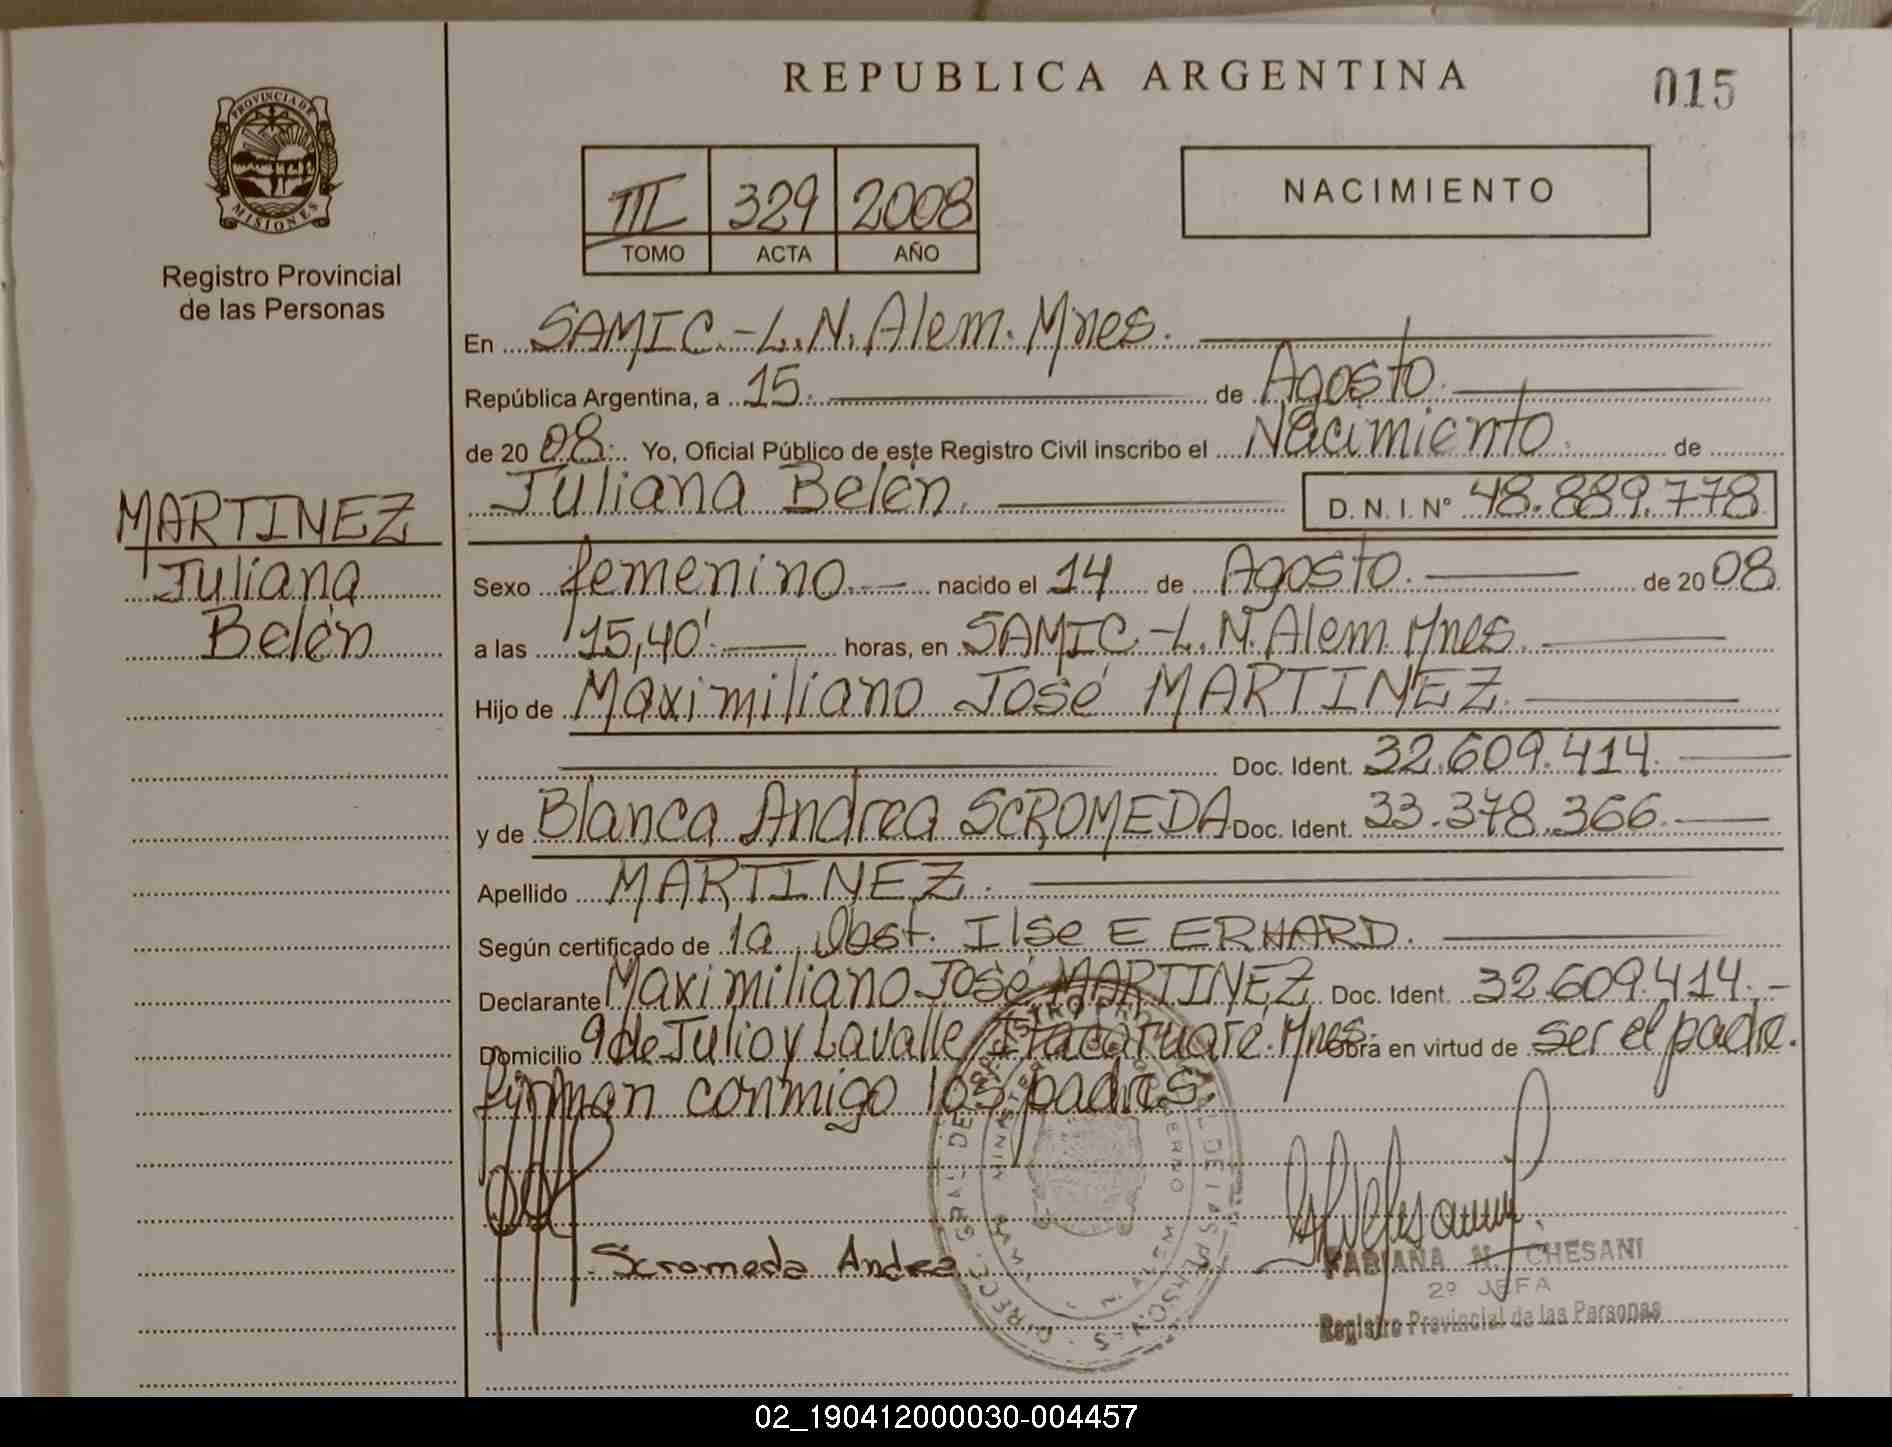 REPUBLICA ARGENTINA
015
PROVINCIA DE
MISIONES
Registro Provincial
de las Personas
III 329 2008
TOMO ACTA AÑO
NACIMIENTO
En SAMIC.-L.N.Alem.Mnes.
República Argentina, a 15. de Agosto.
de 2008. Yo, Oficial Público de este Registro Civil inscribo el Nacimiento. de
Juliana Belén. D. N. I. N° 48.889.778
MARTINEZ
Juliana
Belén
Sexo femenino. nacido el 14 de Agosto. de 2008
a las 15,40' horas, en SAMIC-L.N.Alem.Mnes.
Hijo de Maximiliano José MARTINEZ.
Doc. Ident. 32.609.414.
y de Blanca Andrea SCROMEDA Doc. Ident. 33.378.366.
Apellido MARTINEZ.
Según certificado de la Obst. Ilse E ERHARD.
Declarante Maximiliano José MARTINEZ Doc. Ident. 32.609.414.-
Domicilio 9 de Julio y Lavalle Itacaruare. Mnes. Obra en virtud de ser el padre.
firman conmigo los padres.
Scromeda Andrea
FABIANA N. CHESANI
2º JEFA
Registro Provincial de las Personas
02_190412000030-004457